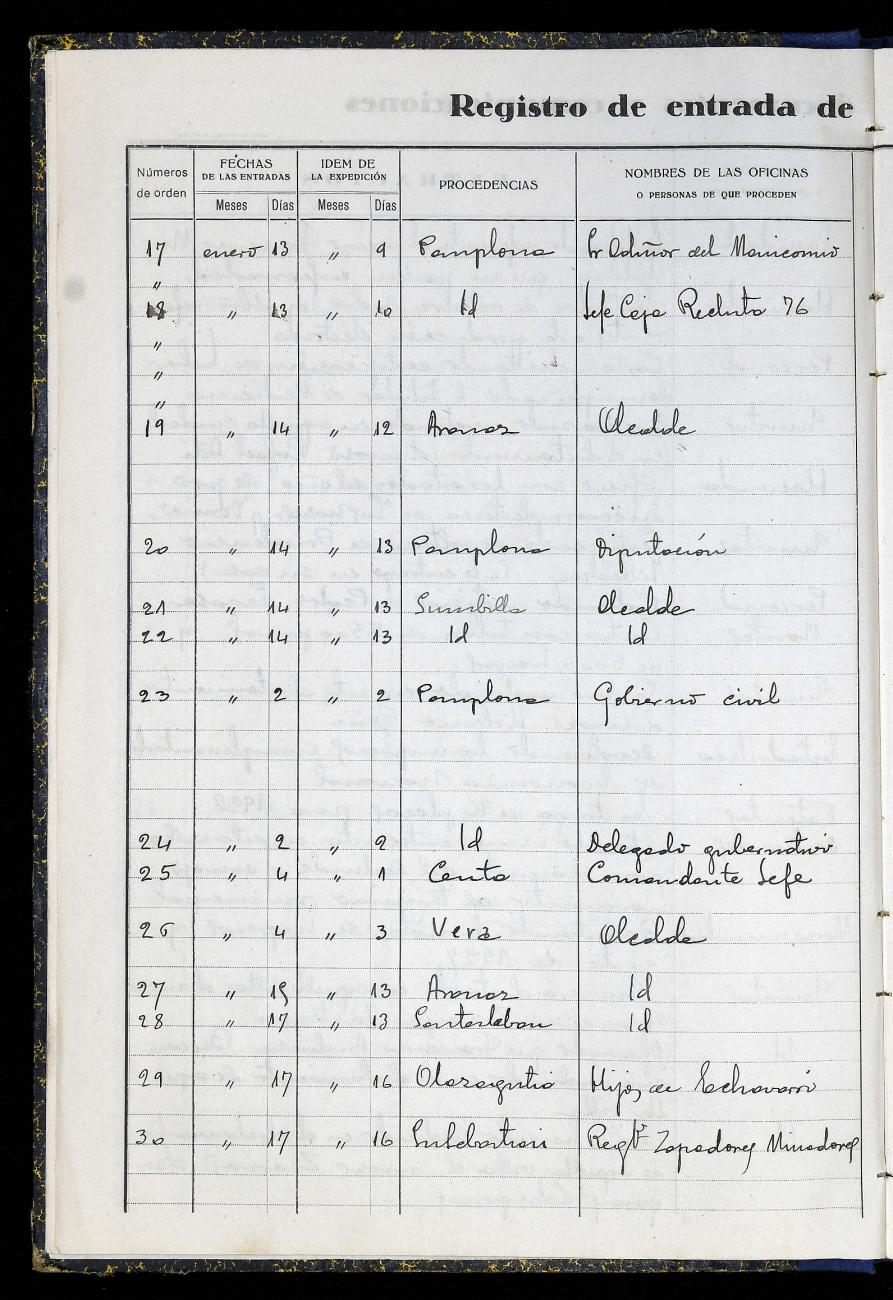 Registro de entrada de
Números de orden
FECHAS DE LAS ENTRADAS
IDEM DE LA EXPEDICIÓN
PROCEDENCIAS
NOMBRES DE LAS OFICINAS O PERSONAS DE QUE PROCEDEN
Meses Días Meses Días
17 enero 13 " 9 Pamplona Sr Admor del Manicomio
"
18 " 13 " 10 Id Jefe Caja Recluta 76
"
"
"
19 " 14 " 12 Aranaz Alcalde
20 " 14 " 13 Pamplona Diputación
21 " 14 " 13 Sumbilla Alcalde
22 " 14 " 13 Id Id
23 " 2 " 2 Pamplona Gobierno civil
24 " 2 " 2 Id Delegado gubernativo
25 " 4 " 1 Ceuta Comandante Jefe
26 " 4 " 3 Vera Alcalde
27 " 15 " 13 Aranaz Id
28 " 17 " 13 Santesteban Id
29 " 17 " 16 Olazagutia Hijos de Echavarri
30 " 17 " 16 Regto Zapadores Minadores